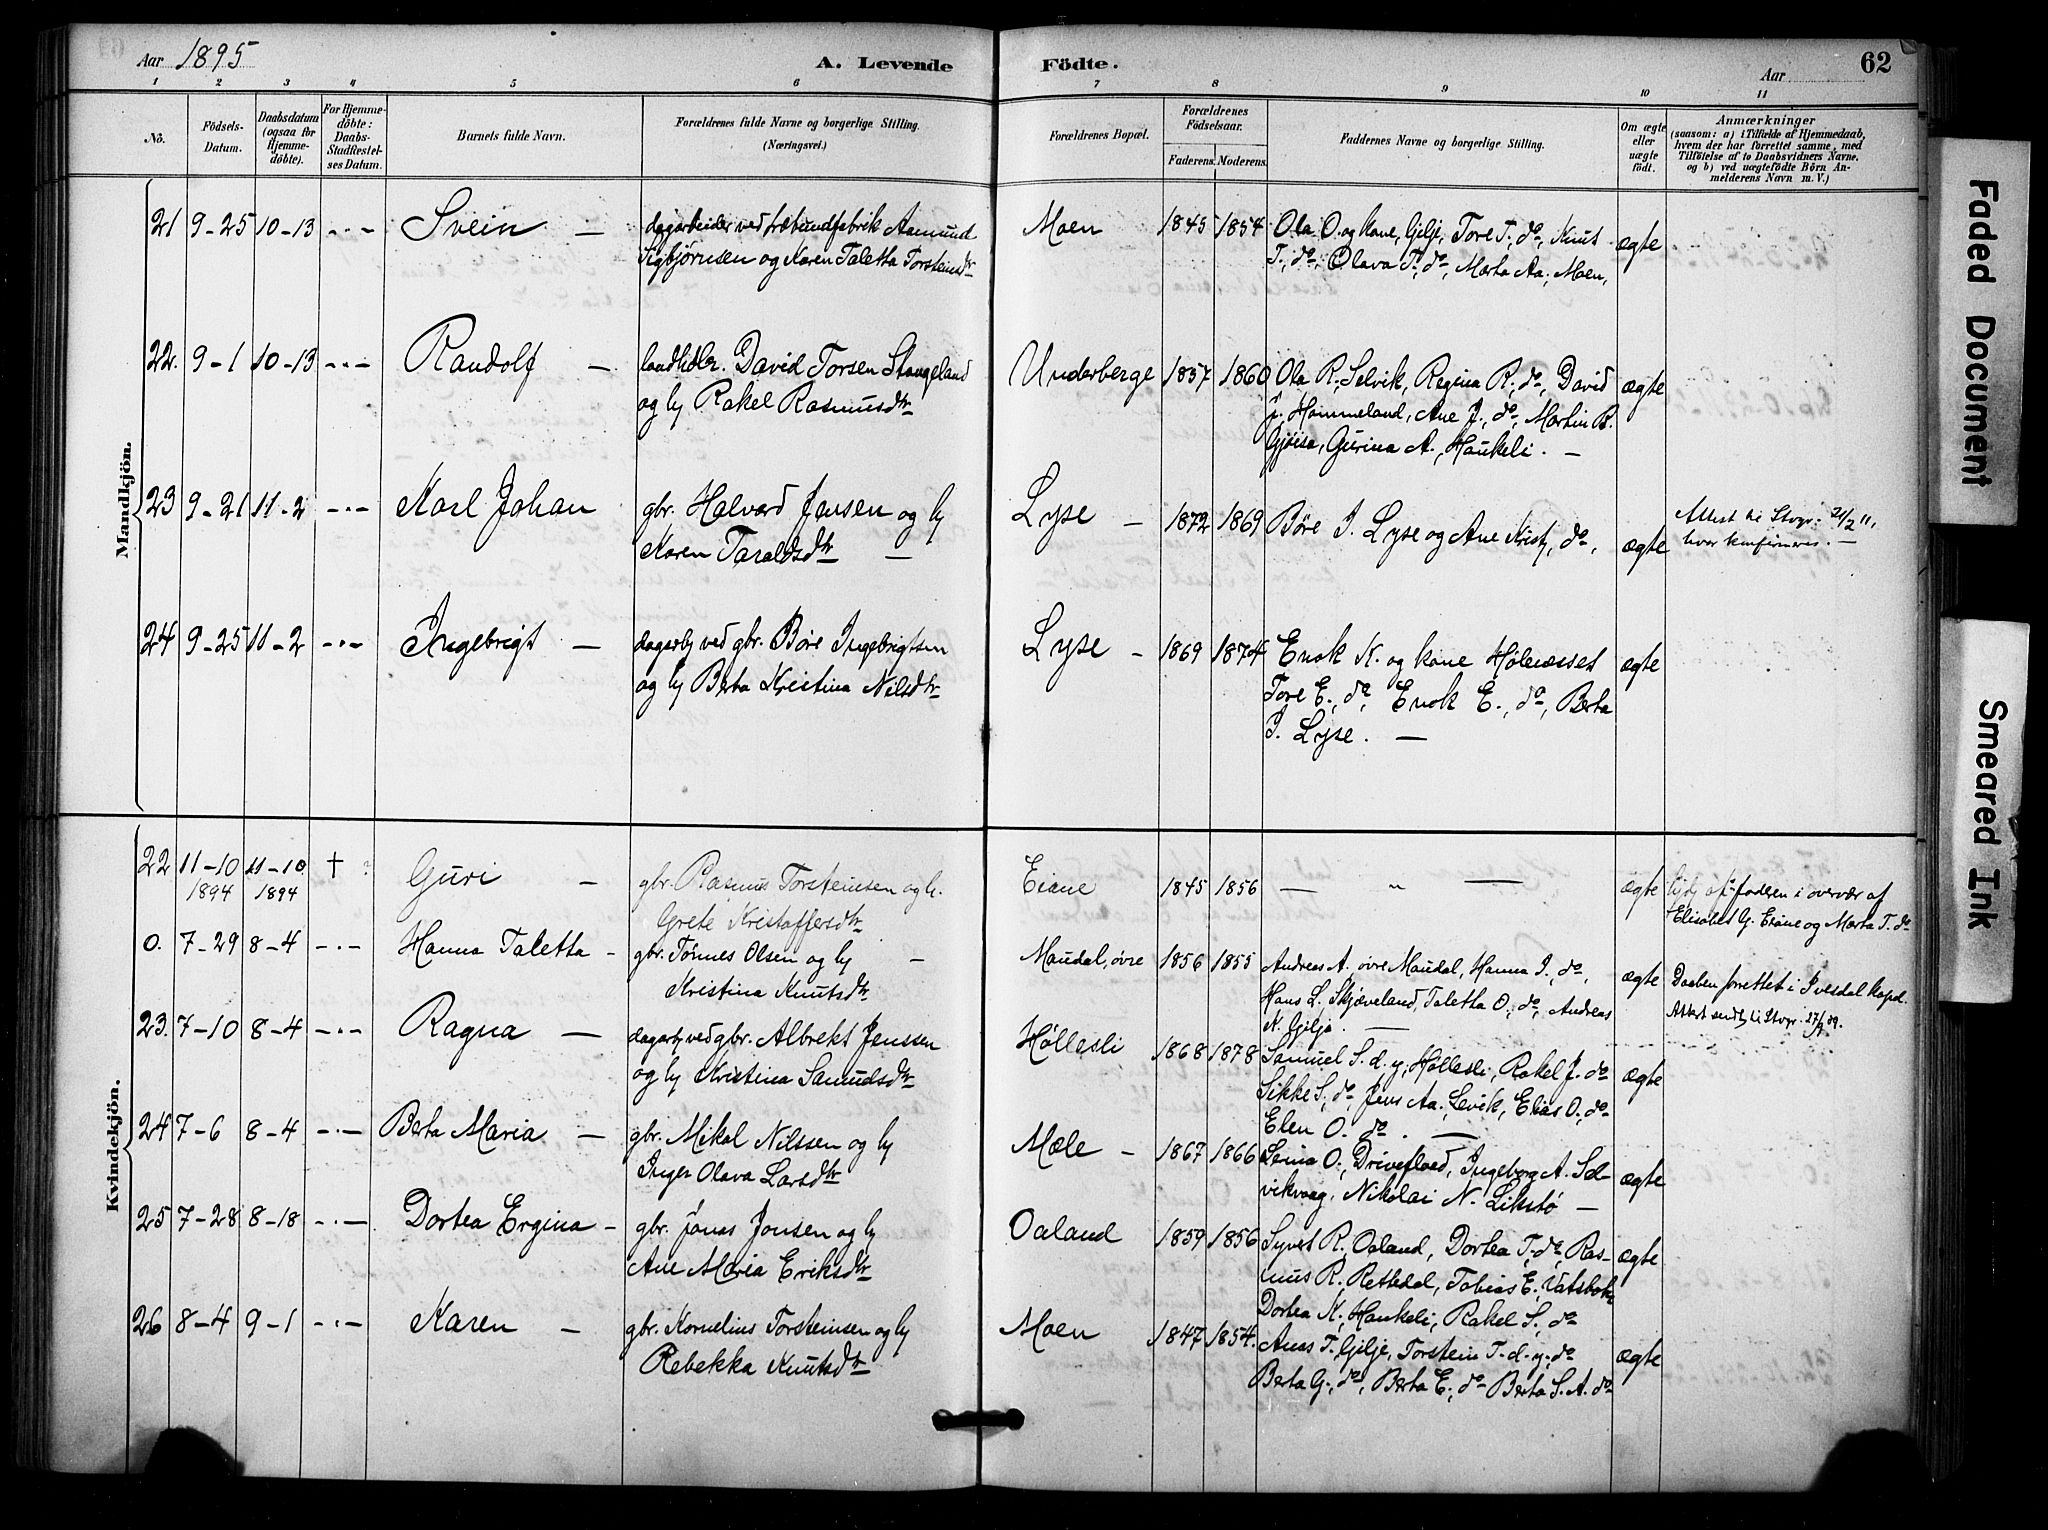 Aar 1895
A. Levende
Födte.
Aar
62
1 2 3 4 5 6 7 8 9 10 11
No.
Födsels-Datum.
Daabsdatum (ogsaa for Hjemme-döbte).
For Hjemme-döbte: Daabs-Stadfæstel-ses Datum.
Barnets fulde Navn.
Forældrenes fulde Navne og borgerlige Stilling. (Næringsvei.)
Forældrenes Bopæl.
Forældrenes Födselsaar.
Faderens. Moderens.
Faddernes Navne og borgerlige Stilling.
Om ægte eller uægte födt.
Anmærkninger
(saasom: a) i Tilfælde af Hjemmedaab,
hvem der har forrettet samme, med
Tilföielse af to Daabsvidners Navne.
og b) ved uægtefödte Börn An-
melderens Navn m. V.)
Mandkjön.
21 9-25 10-13 -·- Svein — dagarbeider ved fræbundfabrik Aamund Moen 1845 1854 Ola O. og Kone, Gilje, Tore T., do, Knut ægte
Sigbjørnsen og Karen Taletta Torsteinsdtr T., do, Olava T., do, Marta Aa., Moen,
22. 9-1 10-13 -·- Randolf — landhdlr. David Torsen Stangeland Underberge 1857 1860 Ola R. Selvik, Regina R., do, David ægte
og hu Rakel Rasmusdtr J. Hommeland, Ane J., do, Martin B.
Gjøisa, Gurina A., Haukeli. —
23 9-21 11-2 -·- Karl Johan gbr. Halvard Jensen og hu Lyse — 1872 1869 Børe I. Lyse og Ane Krist., do, ægte Attest til Stvgr. 21/2 11,
Karen Taraldsdtr — hvor konfirmeres. —
24 9-25 11-2 -·- Ingebrigt — dagarb ved gbr. Børe Ingebrigtsen Lyse — 1869 1874 Enok K. og kone Helmesset ægte
og hu Berta Kristina Nilsdtr Tore E., do, Enok E., do, Berta
I. Lyse. —
Kvindekjön.
22 11-10 11-10 † ? Guri — gbr. Rasmus Torsteinsen og h. Eiane 1845 1856 — „ — ægte af faderen i overvær af
1894 1894 Grete Kristoffersdtr Elisabet G. Eiane og Marta T. do
0. 7-29 8-4 -·- Hanna Taletta — gbr. Tønnes Olsen og hu — Maudal, øvre 1856 1855 Andreas A. øvre Maudal, Hanna I., do, ægte Daaben forrettet i Ivesdal kapel.
Kristina Knutsdtr Hans L. Skjæveland, Taletta O., do, Andreas Attest sendt til Stvgr.
N. Gilje. —
23. 7-10 8-4 -·- Ragna — dagarb ved gbr. Albrekt Jenssen Høllesli 1868 1878 Samuel S. d. y., Høllesli, Rakel J. do ægte
og hu Kristina Samuelsdtr Sikke S., do, Jens Aa. Levik, Elias O., do
Elen O. do. —
24 7-6 8-4 -·- Berta Maria — gbr. Mikal Nilssen og hu Mæle — 1867 1866 Lena O., Drivefloed, Ingeborg A. Sel- ægte
Inger Olava Larsdtr vikvaag, Nikolai N. Likstø —
25 7-28 8-18 -·- Dortea Ergina — gbr. Jonas Jonsen og hu Oaland 1859 1856 Syvert R., Oaland, Dortea T., do, Ras- ægte
Ane Maria Eriksdtr mus R. Rettedal, Tobias E. Vatsbak
Dortea K., Haukeli, Rakel S., do
26 8-4 9-1 -·- Karen — gbr. Kornelius Torsteinsen og hu Moen 1847 1854. Anas T. Gilje, Torstein T. d. y. do ægte
Rebekka Knutsdtr Berta G., do, Berta E., do Berta S. A. do
Faded Document
Smeared Ink